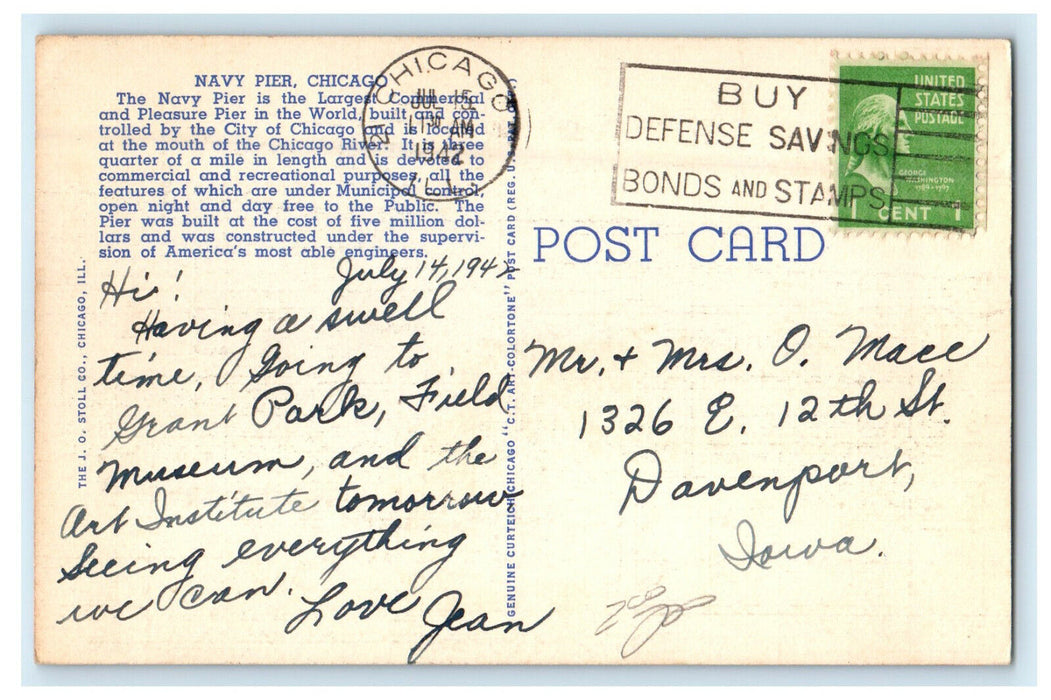 NAVY PIER, CHICAGO
The Navy Pier is the Largest Commercial
and Pleasure Pier in the World, built and con-
trolled by the City of Chicago and is located
at the mouth of the Chicago River. It is three
quarter of a mile in length and is devoted to
commercial and recreational purposes, all the
features of which are under Municipal control,
open night and day free to the Public. The
Pier was built at the cost of five million dol-
lars and was constructed under the supervi-
sion of America's most able engineers.
July 14, 1942
Hi!
Having a swell
time. Going to
Grant Park, Field
Museum, and the
Art Institute tomorrow
Seeing everything
we can.
Love Jean
THE J. O. STOLL CO., CHICAGO, ILL.
GENUINE CURTEICH-CHICAGO "C.T. ART-COLORTONE" POST CARD (REG. U.S. PAT.
CHICAGO
JUL 15
1 30 AM
1942
ILL
BUY
DEFENSE SAVINGS
BONDS AND STAMPS
UNITED
STATES
POSTAGE
GEORGE
WASHINGTON
1789-1797
1 CENT 1
POST CARD
Mr. + Mrs. O. Mace
1326 E. 12th St.
Davenport,
Iowa.